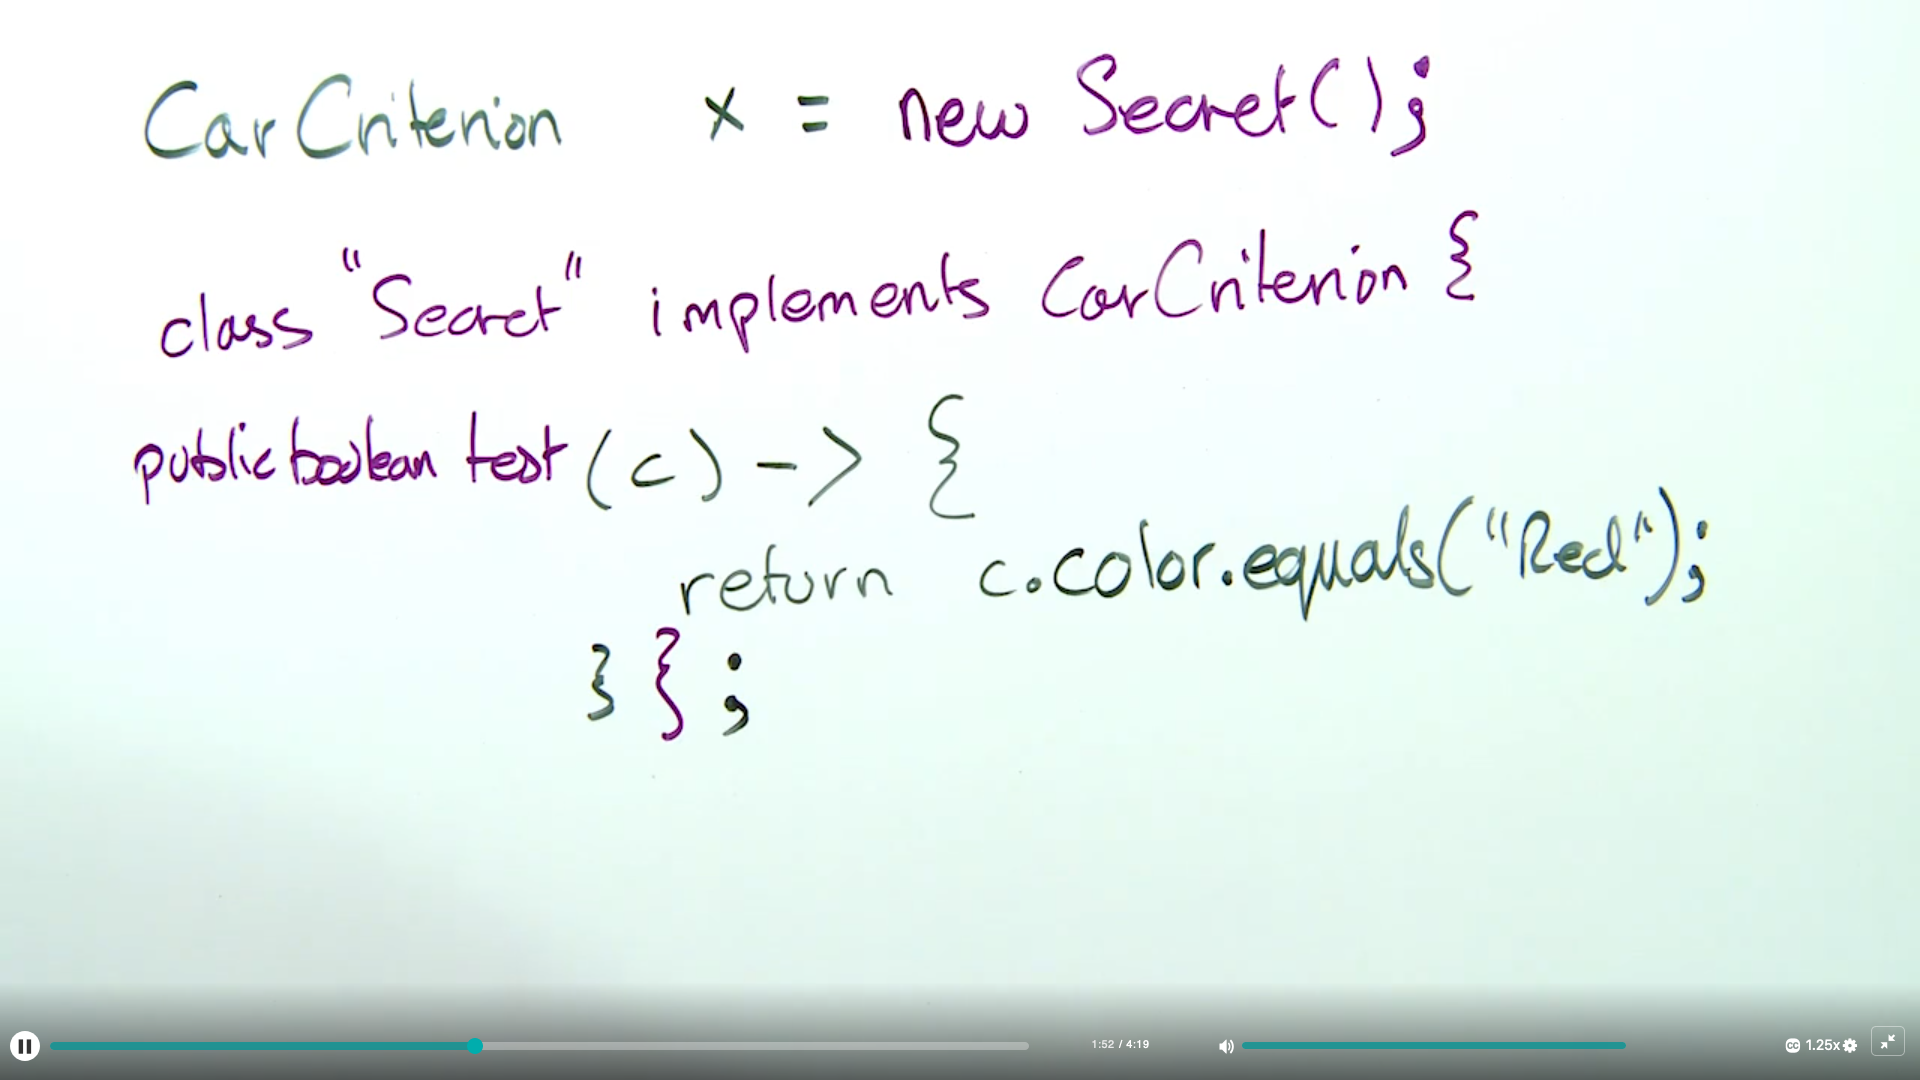 CarCriterion x = new Secret();
class "Secret" implements CarCriterion {
public boolean test (c) -> {
return c.color.equals("Red");
} } ;
1:52 / 4:19
CC 1.25x